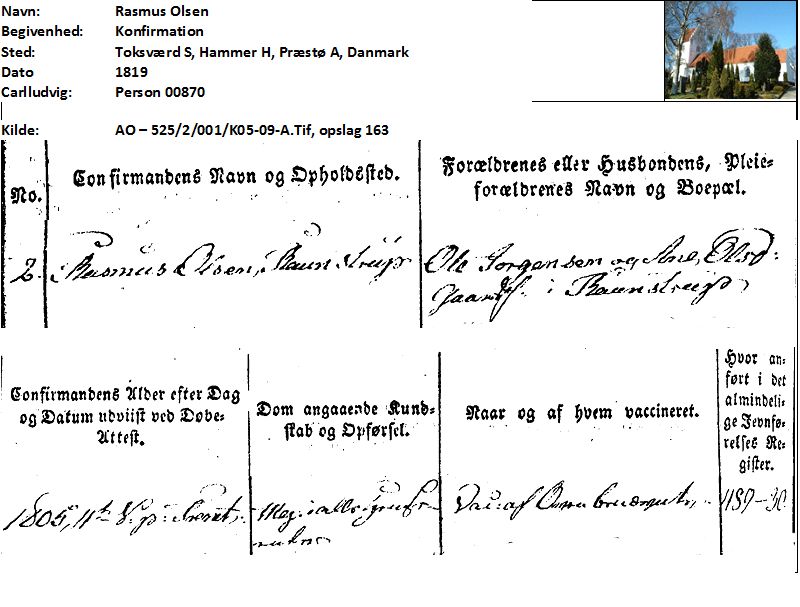 Navn: Rasmus Olsen
Begivenhed: Konfirmation
Sted: Toksværd S, Hammer H, Præstø A, Danmark
Dato 1819
Carlludvig: Person 00870
Kilde: AO – 525/2/001/K05-09-A.Tif, opslag 163
No.
Confirmandens Navn og Opholdssted.
Forældrenes eller Husbondens, Pleie-
forældrenes Navn og Boepæl.
2. Rasmus Olsen, Raunstrup
Ole Jørgensen og Ane Olsd:
i Raunstrup
Confirmandens Alder efter Dag
og Datum udviist ved Døbe-
Attest.
Dom angaaende Kund-
skab og Opførsel.
Naar og af hvem vaccineret.
Hvor an-
ført i det
almindeli-
ge Jevnfø-
relses Re-
gister.
1805, 4de S. p: Trent.
Meg:
Vac: af